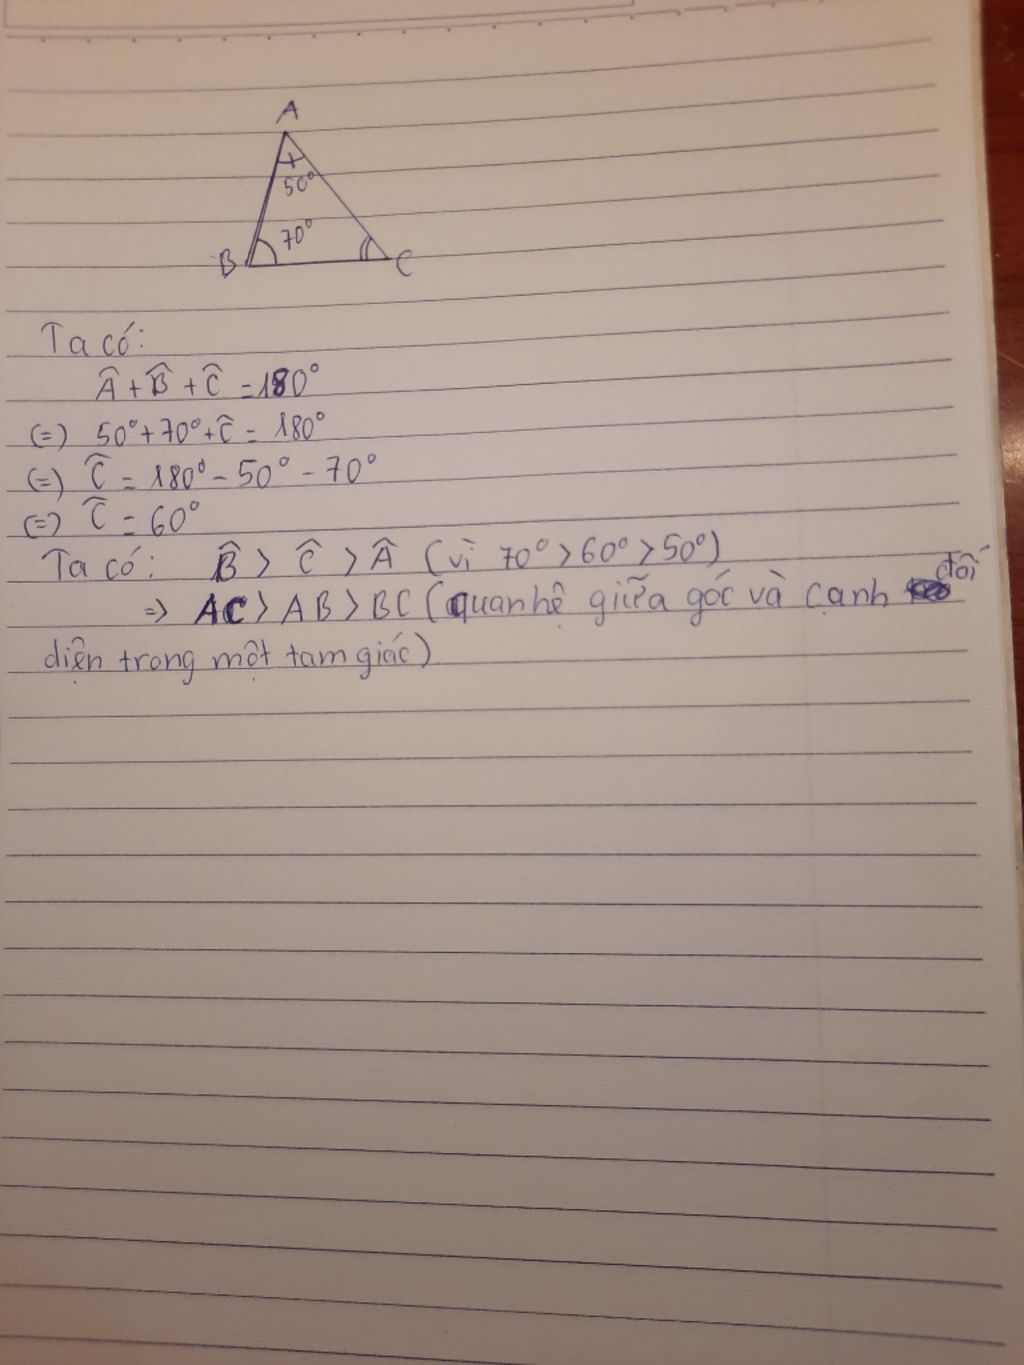 A
50°
70°
B
C
Ta có:
Â + B̂ + Ĉ = 180°
(=) 50° + 70° + Ĉ = 180°
(=) Ĉ = 180° - 50° - 70°
(=) Ĉ = 60°
Ta có: B̂ > Ĉ > Â (vì 70° > 60° > 50°)
=> AC > AB > BC (quan hệ giữa góc và cạnh đối
diện trong một tam giác)